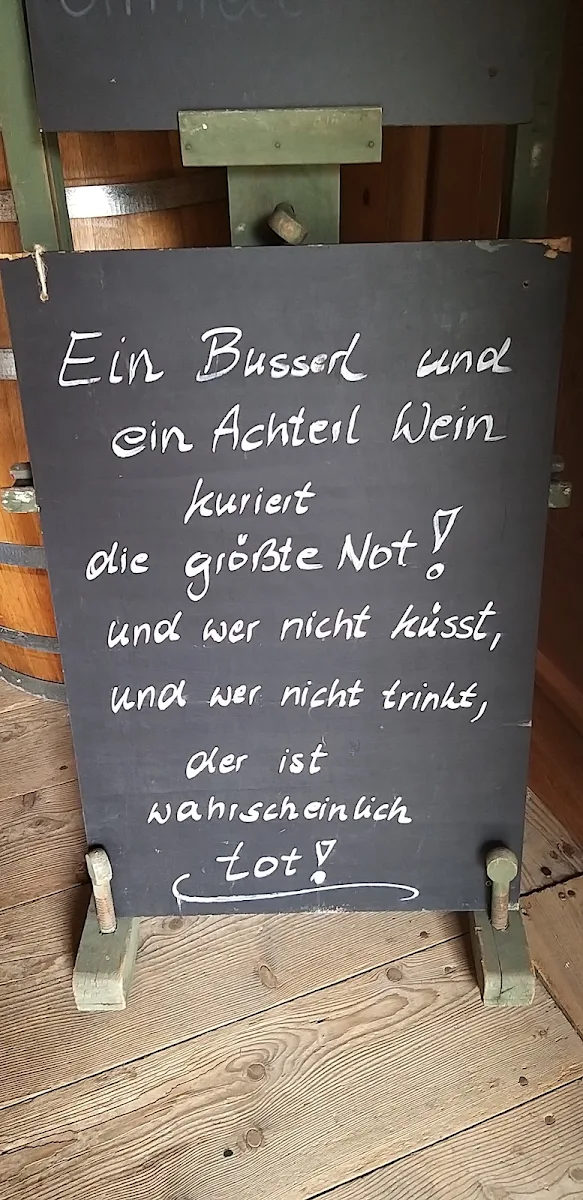 Ein Busserl und
ein Achterl Wein
kuriert
die größte Not!
und wer nicht küsst,
und wer nicht trinkt,
der ist
wahrscheinlich
tot!